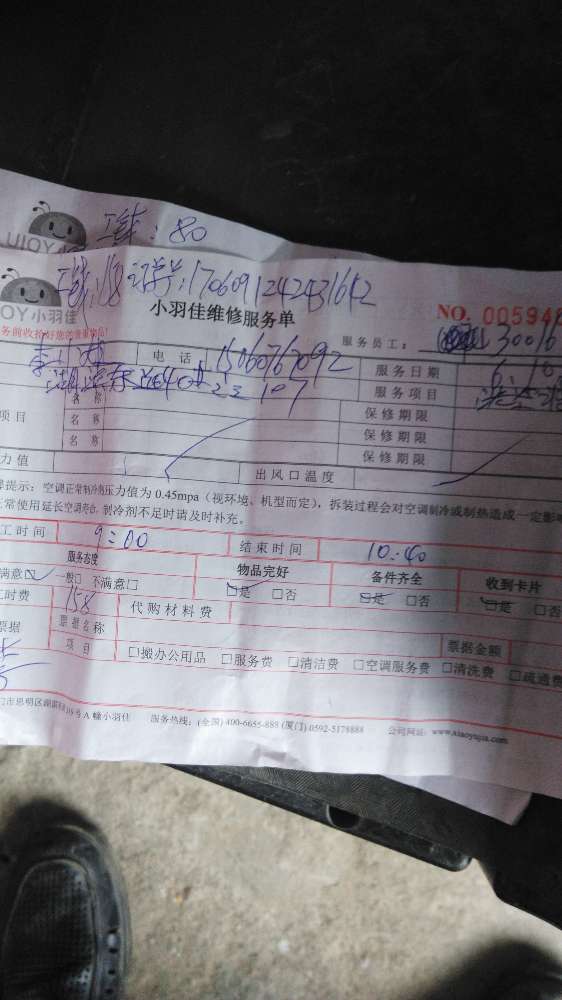 UJOY小
工钱:80
订单号:1706091242431642
OY小羽佳
小羽佳维修服务单
NO. 005948
务前收拾好您的贵重物品!
服务员工: 30016
电话 15060767092 服务日期 6 10
名称 服务项目
项目 名称 保修期限
名称 保修期限
保修期限
力值 出风口温度
提示:空调正常制冷高压力值为 0.45mpa(视环境、机型而定),拆装过程会对空调制冷或制热造成一定影响
正常使用延长空调寿命,制冷剂不足时请及时补充。
工时间 9:00 结束时间 10:40
服务态度 物品完好 备件齐全 收到卡片
满意☑ 一般□ 不满意□ □是 □否 □是 □否 □是 □否
工时费 158 代购材料费
票据 票据名称 票据金额
项目 □搬办公用品 □服务费 □清洁费 □空调服务费 □清洗费 □疏通费
门市思明区湖滨 号 A 幢小羽佳 服务热线:(全国) 400-6655-888 (厦门) 0592-5178888 公司网址:www.xiaoyujia.com